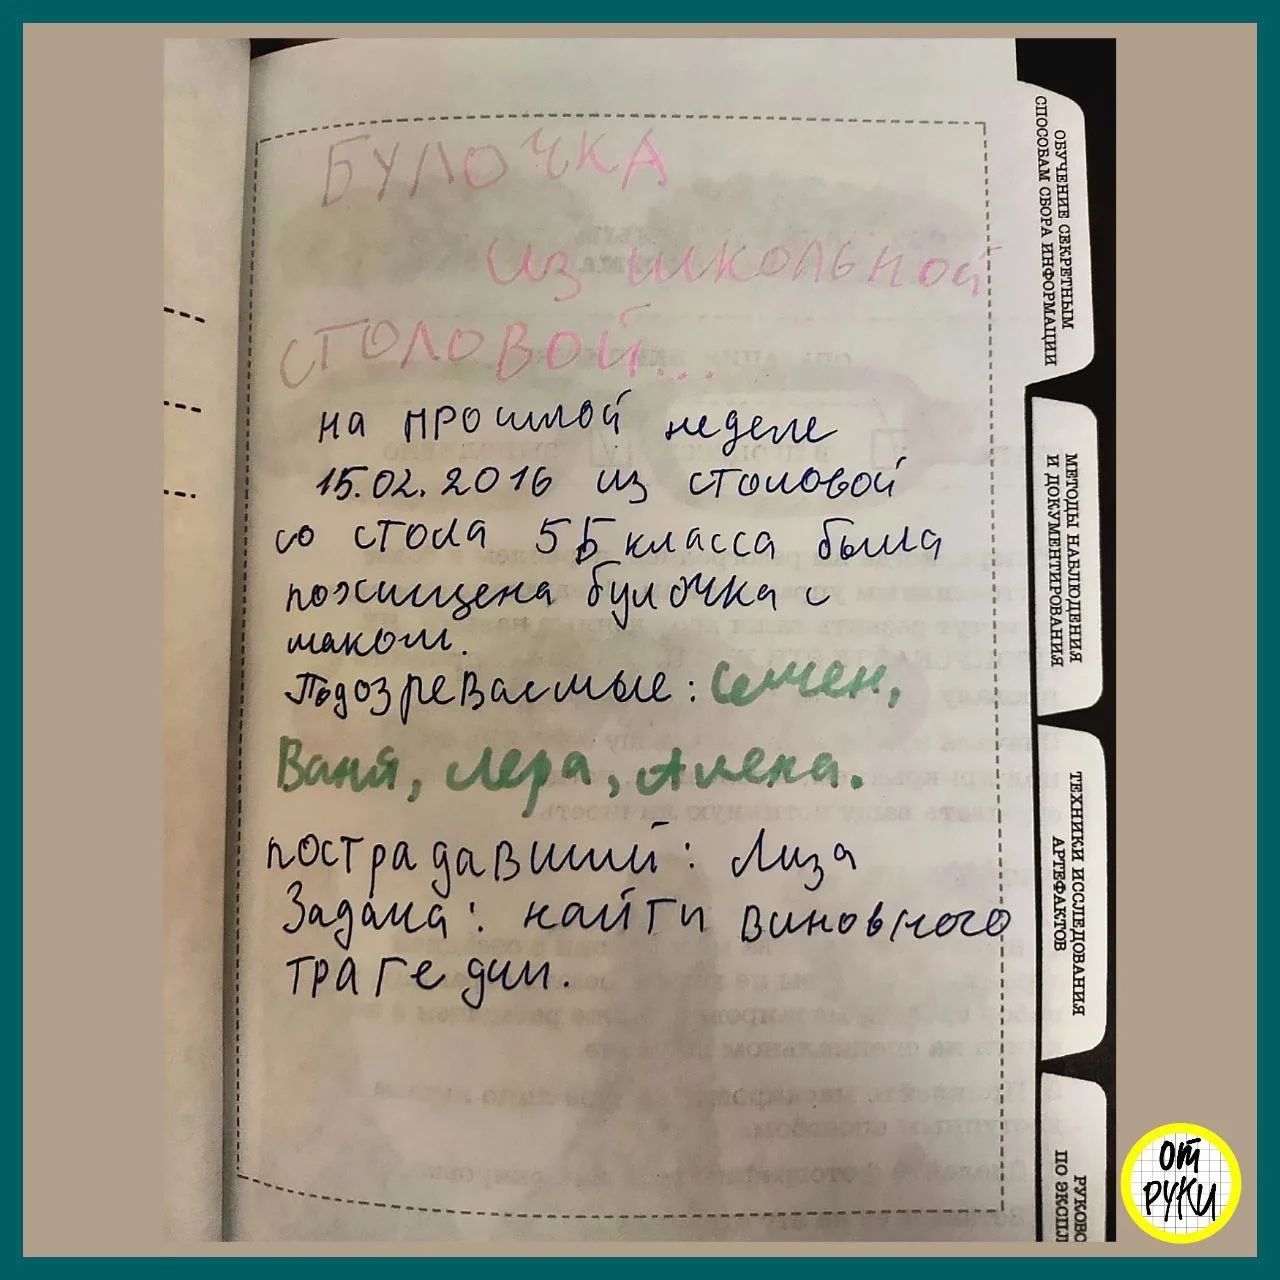 БУЛОЧКА
из школьной
СТОЛОВОЙ...
на прошлой неделе
15.02.2016 из столовой
со стола 5Б класса была
похищена булочка с
маком.
Подозреваемые: Семен,
Ваня, Лера, Алена.
пострадавший: Лиза
Задача: найти виновного
трагедии.
ОБУЧЕНИЕ СЕКРЕТНЫМ
СПОСОБАМ СБОРА ИНФОРМАЦИИ
МЕТОДЫ НАБЛЮДЕНИЯ
И ДОКУМЕНТИРОВАНИЯ
ТЕХНИКИ ИССЛЕДОВАНИЯ
АРТЕФАКТОВ
РУКОВО
ПО ЭКСПЛ
ОТ
РУКИ